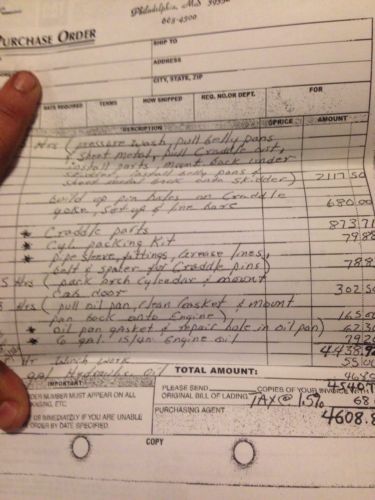 Philadelphia, MS
PURCHASE ORDER
SHIP TO
ADDRESS
CITY, STATE, ZIP
DATE REQUIRED TERMS HOW SHIPPED REQ. NO. OR DEPT. FOR
DESCRIPTION PRICE AMOUNT
Hrs (pressure wash, pull belly pans
& sheet metal, pull Craddle out,
install parts, mount back under
skidder, install belly pans &
sheet metal back onto skidder) 2117.50
build up pin holes on Craddle
yoke, set up & line bore 680.00
* Craddle parts 873.71
* Cyl. packing Kit 79.88
* pipe sleeve, fittings, grease lines,
bolt & spacer for Craddle pins) 78.8
5 Hrs (pack arch Cylendar & mount
Cab door 302.50
Hrs (pull oil pan, clean gasket & mount
pan back onto Engine), 165.00
* oil pan gasket & repair hole in oil pan) 62.30
* 6 gal. 15/40 Engine oil 79.20
4438.9
Hr Winch work 55.00
gal Hydraulic oil
TOTAL AMOUNT:
IMPORTANT
ORDER NUMBER MUST APPEAR ON ALL
ETC.
US IMMEDIATELY IF YOU ARE UNABLE
ORDER BY DATE SPECIFIED.
PLEASE SEND COPIES OF YOUR INVOICE
ORIGINAL BILL OF LADING. TAX @ 1.5% 68
PURCHASING AGENT 4608.8
COPY